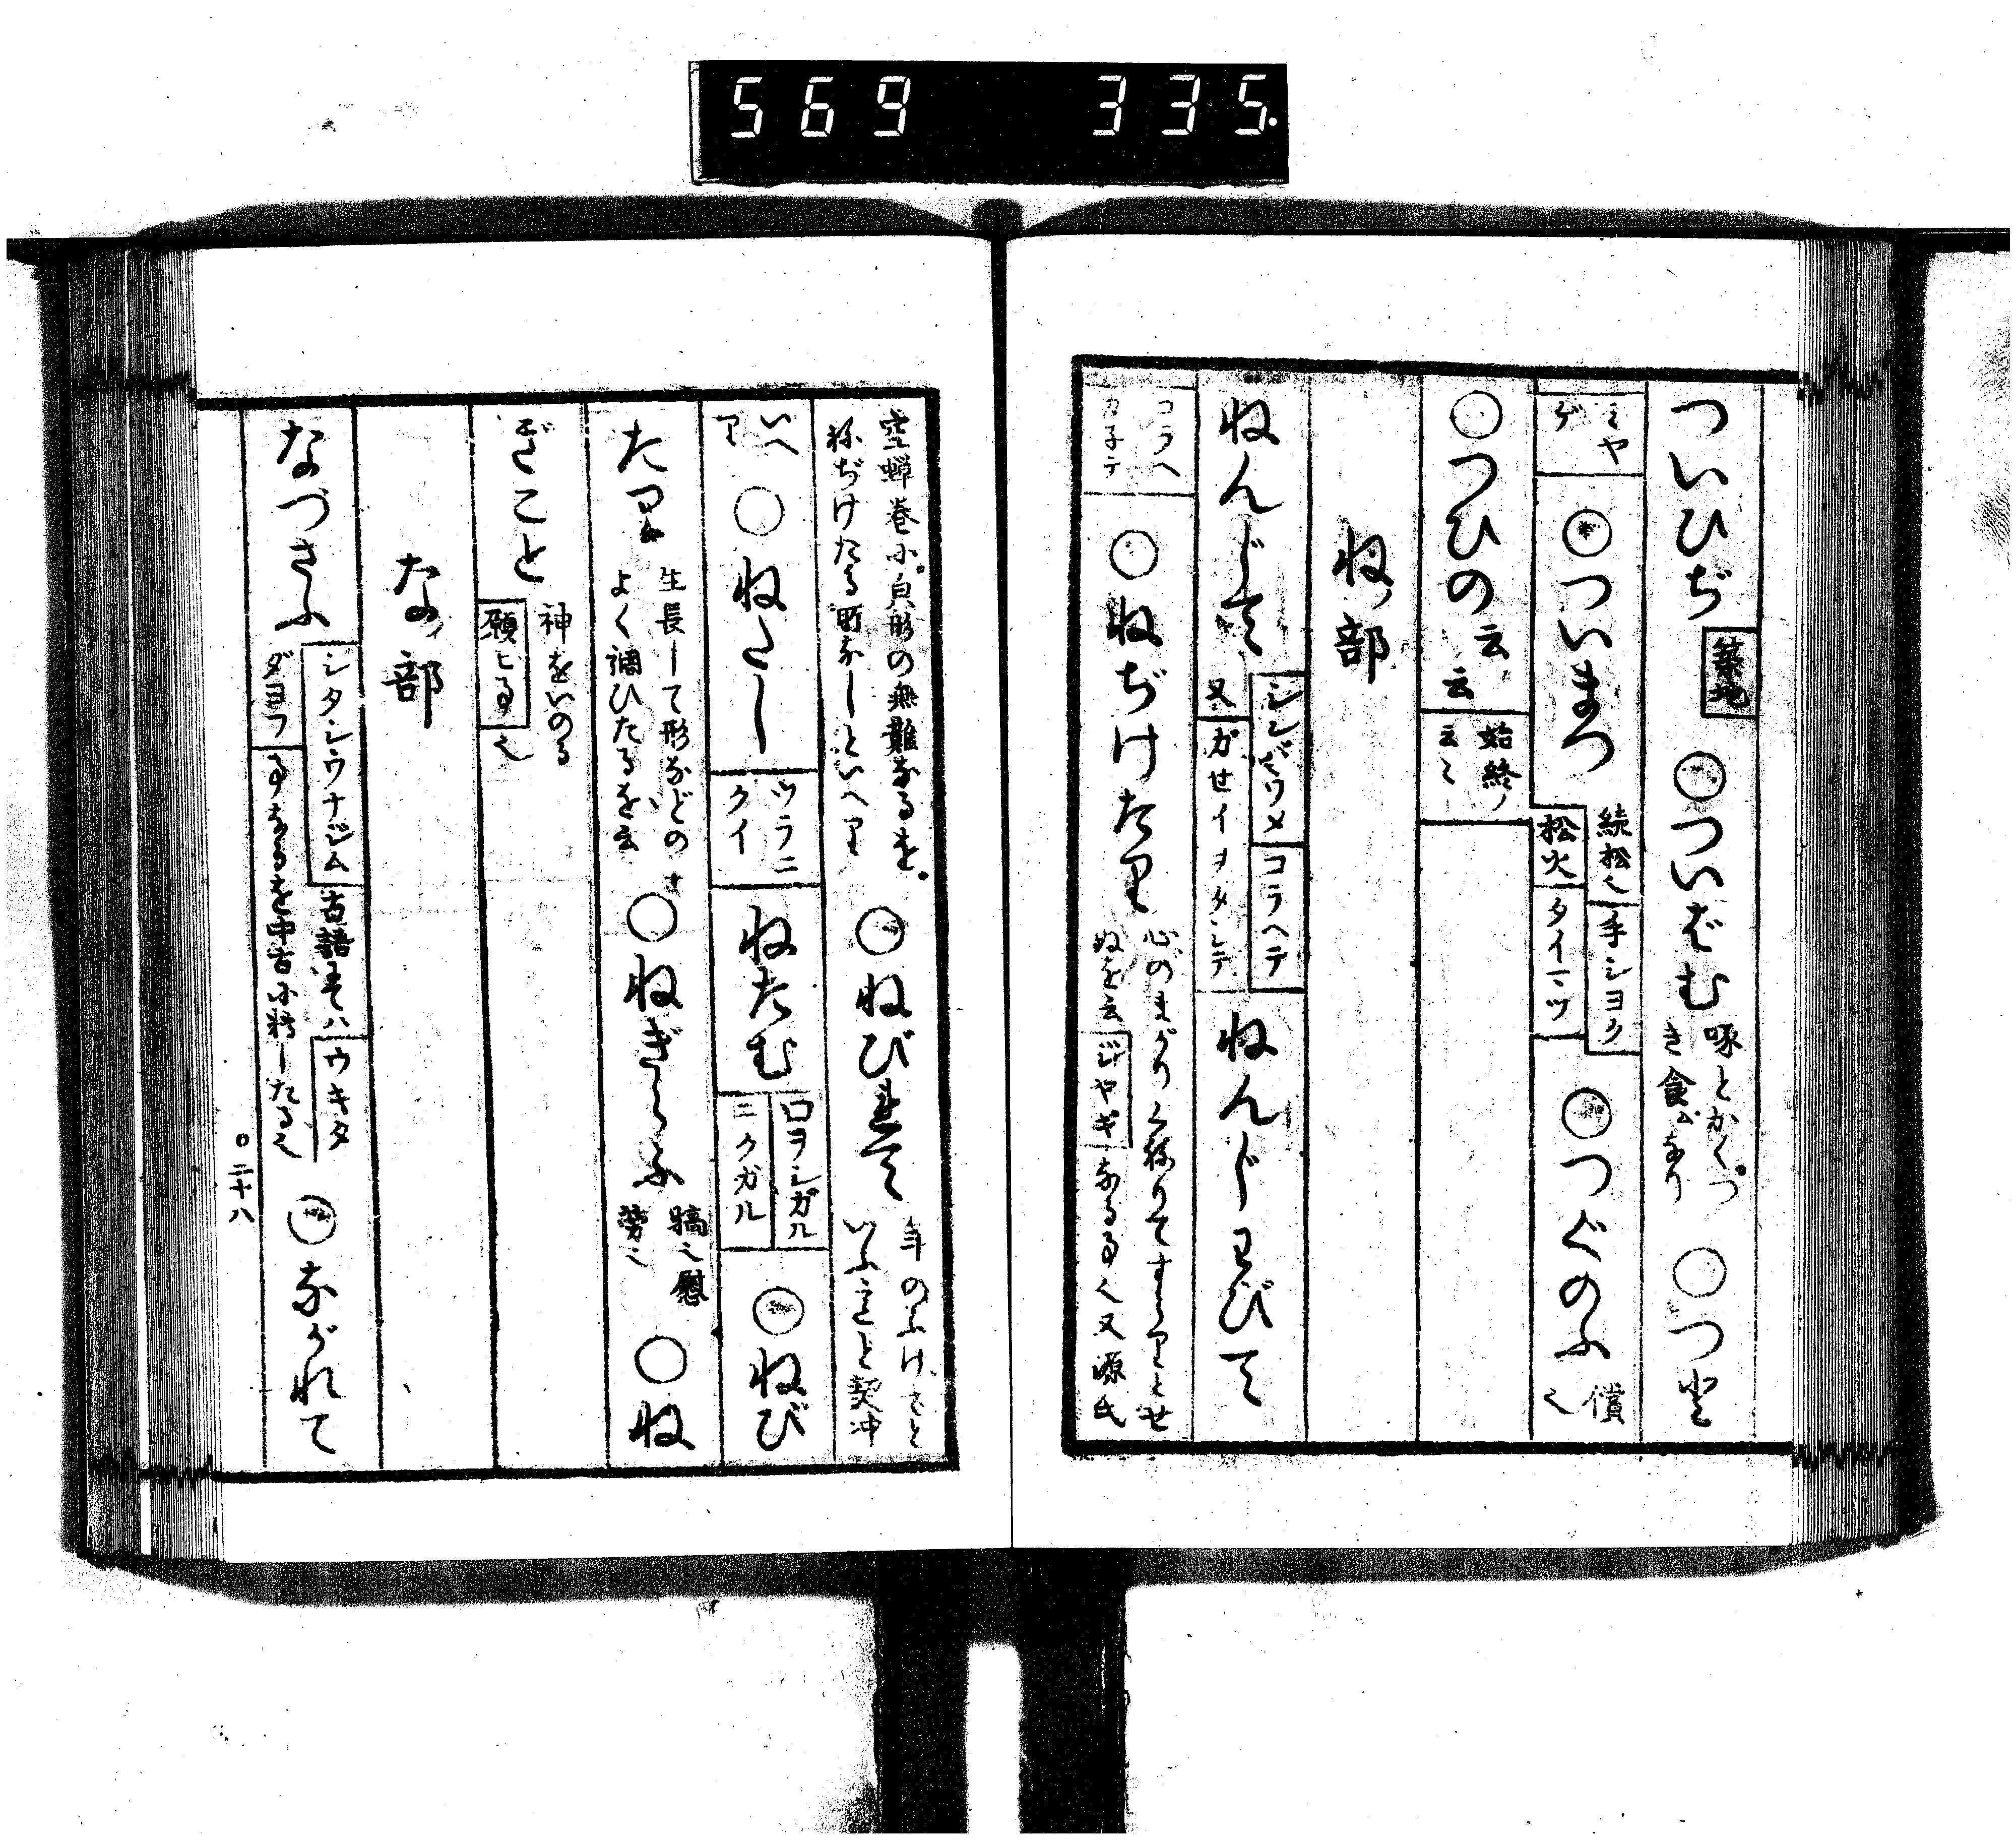 569 335.
ついひぢ 築地 ○ついばむ 啄とかく。つ
き食ふなり ○つと
ミヤ
ゲ ○ついまつ 続松也 手シヨク
松火 タイマツ ○つぐのふ 償
也
○つひの云
云 始終ノ
云〻
ねノ部
ねんじて シンバウメ コラヘテ
又 ガセイヲタシテ ねんじわびて
コラヘ
カネテ ○ねぢけたり 心のまがりくねりてすゝりとせ
ぬを云 ジヤギ なる事也 又源氏
空蝉巻に。貞形の無難なるを。
ねぢけたる所なしといへり ○ねびれて 年のふけ
いふこと契冲
いへ
り ○ねたし ツラニ
クイ ねたむ 口ヲシガル
ニクガル ○ねび
たり 生長して形などの
よく調ひたるを云 ○ねぎらふ 犒也慰
労也 ○ね
ぎこと 神をいのる
願ヒ事 也
なノ部
なづさふ シタシウナジム 古語にてハ ウキタ
ダヨフ 事なるを中古に転したる也 ○ながれて
○二十八